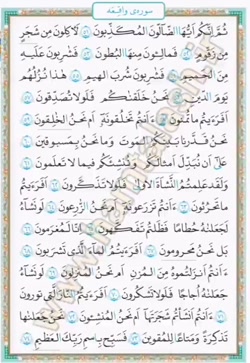 سوره‌ی واقعه
ثُمَّ إِنَّكُمْ أَيُّهَا الضَّالُّونَ الْمُكَذِّبُونَ ﴿٥١﴾ لَآكِلُونَ مِن شَجَرٍ
مِّن زَقُّومٍ ﴿٥٢﴾ فَمَالِئُونَ مِنْهَا الْبُطُونَ ﴿٥٣﴾ فَشَارِبُونَ عَلَيْهِ
مِنَ الْحَمِيمِ ﴿٥٤﴾ فَشَارِبُونَ شُرْبَ الْهِيمِ ﴿٥٥﴾ هَٰذَا نُزُلُهُمْ
يَوْمَ الدِّينِ ﴿٥٦﴾ نَحْنُ خَلَقْنَاكُمْ فَلَوْلَا تُصَدِّقُونَ ﴿٥٧﴾
أَفَرَأَيْتُم مَّا تُمْنُونَ ﴿٥٨﴾ أَأَنتُمْ تَخْلُقُونَهُ أَمْ نَحْنُ الْخَالِقُونَ ﴿٥٩﴾
نَحْنُ قَدَّرْنَا بَيْنَكُمُ الْمَوْتَ وَمَا نَحْنُ بِمَسْبُوقِينَ ﴿٦٠﴾
عَلَىٰ أَن نُّبَدِّلَ أَمْثَالَكُمْ وَنُنشِئَكُمْ فِي مَا لَا تَعْلَمُونَ ﴿٦١﴾
وَلَقَدْ عَلِمْتُمُ النَّشْأَةَ الْأُولَىٰ فَلَوْلَا تَذَكَّرُونَ ﴿٦٢﴾ أَفَرَأَيْتُم
مَّا تَحْرُثُونَ ﴿٦٣﴾ أَأَنتُمْ تَزْرَعُونَهُ أَمْ نَحْنُ الزَّارِعُونَ ﴿٦٤﴾ لَوْ نَشَاءُ
لَجَعَلْنَاهُ حُطَامًا فَظَلْتُمْ تَفَكَّهُونَ ﴿٦٥﴾ إِنَّا لَمُغْرَمُونَ ﴿٦٦﴾
بَلْ نَحْنُ مَحْرُومُونَ ﴿٦٧﴾ أَفَرَأَيْتُمُ الْمَاءَ الَّذِي تَشْرَبُونَ ﴿٦٨﴾
أَأَنتُمْ أَنزَلْتُمُوهُ مِنَ الْمُزْنِ أَمْ نَحْنُ الْمُنزِلُونَ ﴿٦٩﴾ لَوْ نَشَاءُ
جَعَلْنَاهُ أُجَاجًا فَلَوْلَا تَشْكُرُونَ ﴿٧٠﴾ أَفَرَأَيْتُمُ النَّارَ الَّتِي تُورُونَ
﴿٧١﴾ أَأَنتُمْ أَنشَأْتُمْ شَجَرَتَهَا أَمْ نَحْنُ الْمُنشِئُونَ ﴿٧٢﴾ نَحْنُ جَعَلْنَاهَا
تَذْكِرَةً وَمَتَاعًا لِّلْمُقْوِينَ ﴿٧٣﴾ فَسَبِّحْ بِاسْمِ رَبِّكَ الْعَظِيمِ ﴿٧٤﴾